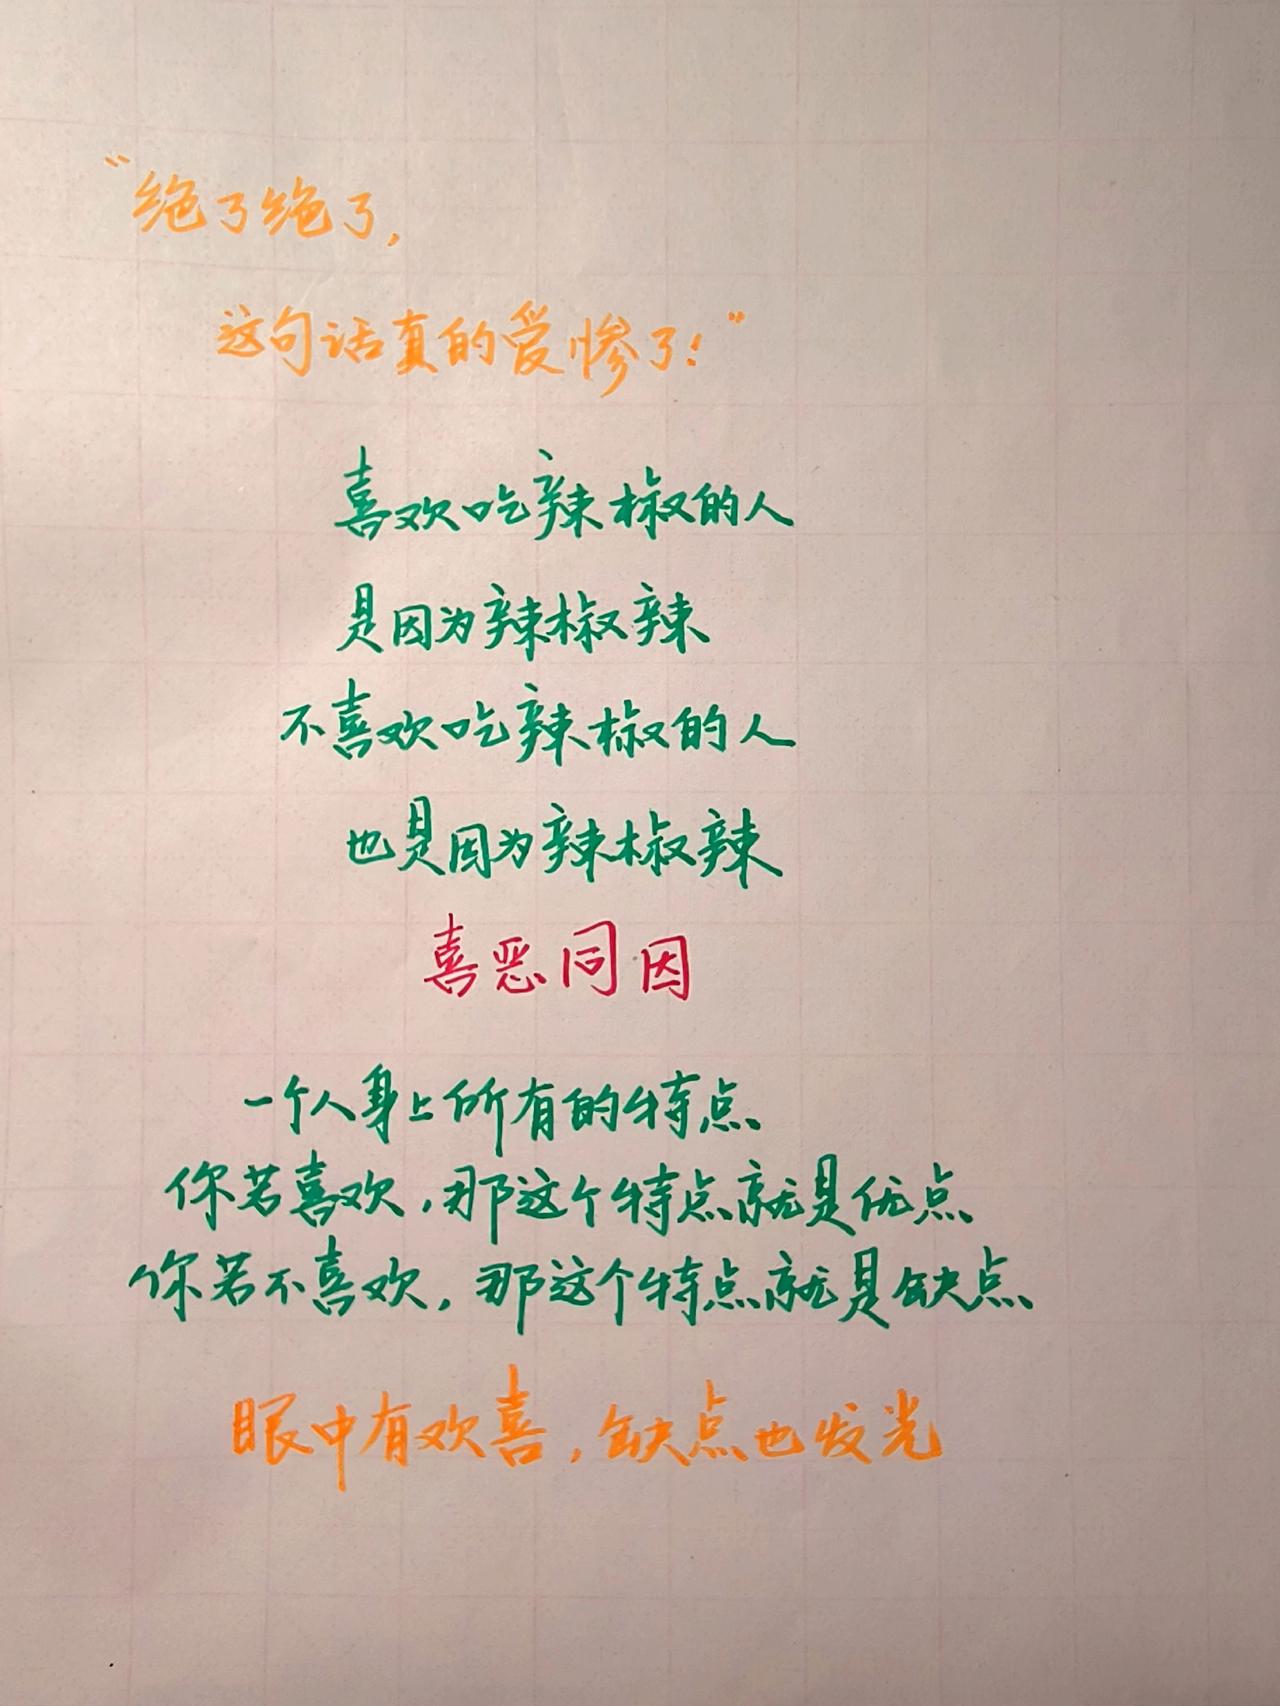 “绝了绝了，
这句话真的爱惨了！”
喜欢吃辣椒的人
是因为辣椒辣
不喜欢吃辣椒的人
也是因为辣椒辣
喜恶同因
一个人身上所有的特点
你若喜欢，那这个特点就是优点
你若不喜欢，那这个特点就是缺点
眼中有欢喜，缺点也发光